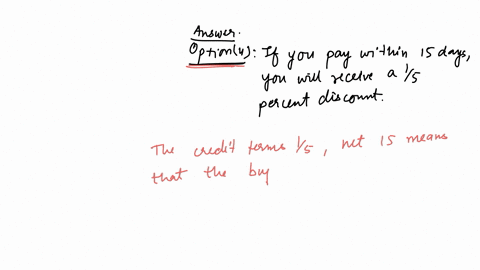 Answer.
Option(4): If you pay within 15 days,
you will receive a 1/5
percent discount.
The credit terms 1/5, net 15 means
that the buy